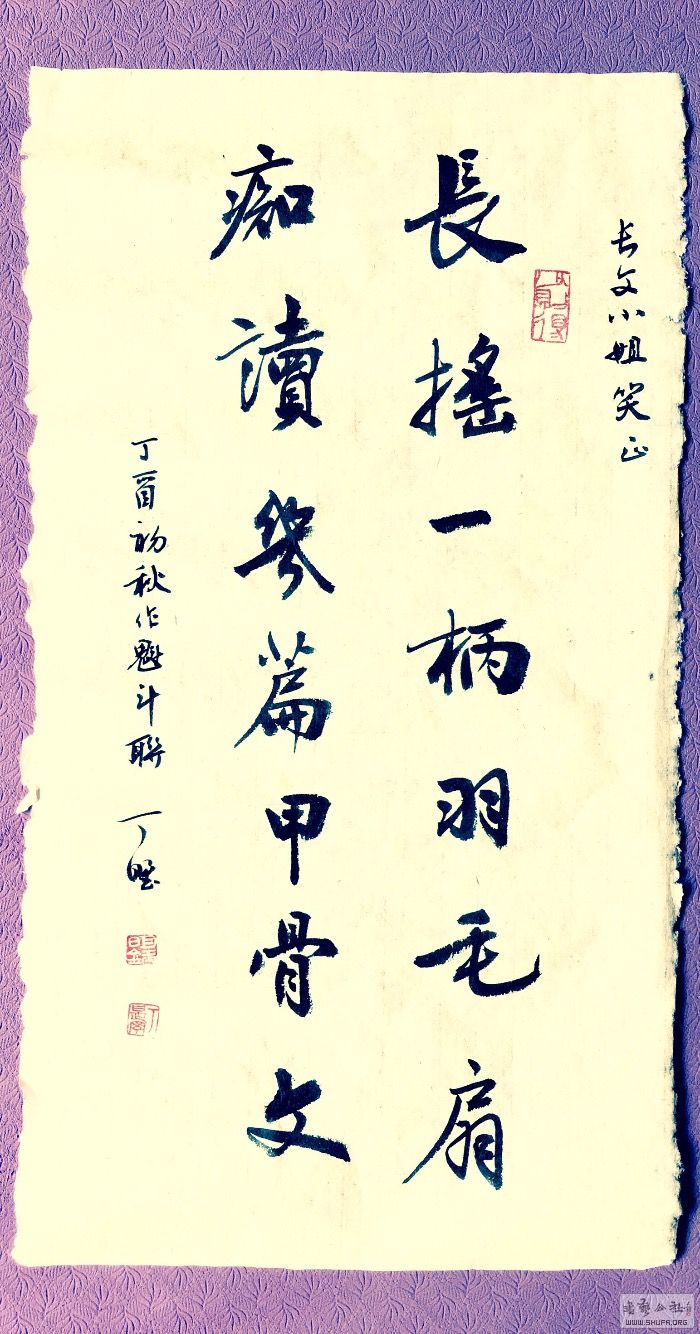 长文小姐笑正
長搖一柄羽毛扇
痴讀幾篇甲骨文
丁酉初秋作魁斗聯 丁
WWW.SHUFA.ORG